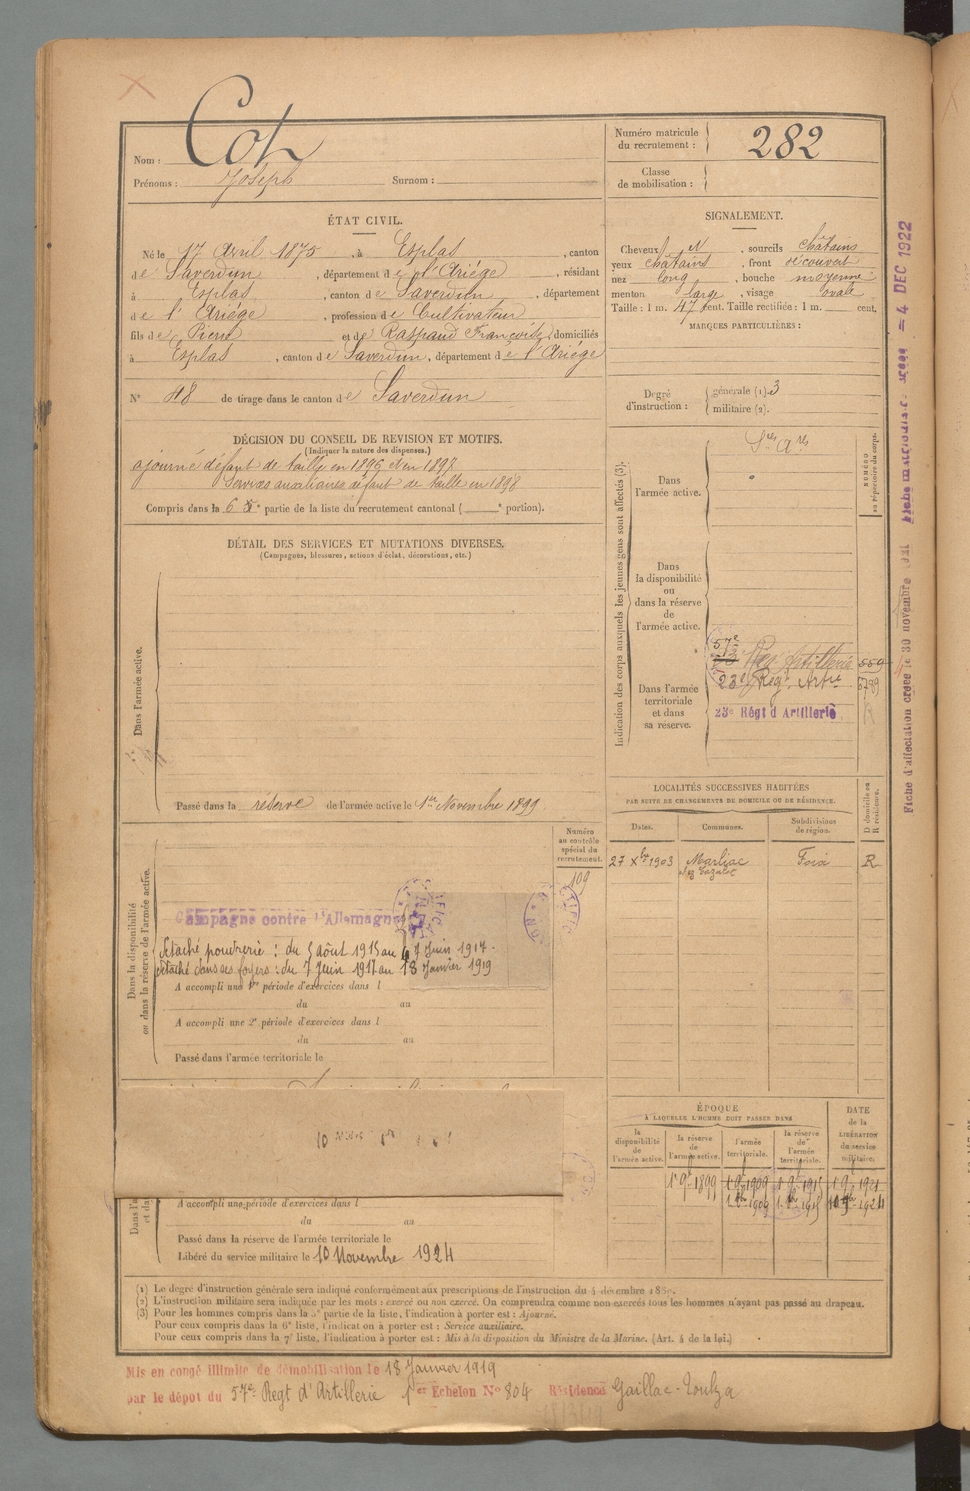 Nom : Cot
Prénoms : Joseph Surnom :
Numéro matricule du recrutement : 282
Classe de mobilisation :
ÉTAT CIVIL.
Né le 17 Avril 1875, à Esplas, canton
de Saverdun, département de l'Ariége, résidant
à Esplas, canton de Saverdun, département
de l'Ariége, profession de Cultivateur
fils de Pierre et de Raspaud Françoise, domiciliés
à Esplas, canton de Saverdun, département de l'Ariége
N° 48 de tirage dans le canton de Saverdun
SIGNALEMENT.
Cheveux et N, sourcils châtains
yeux châtains, front découvert
nez long, bouche moyenne
menton large, visage ovale
Taille : 1 m. 47 cent. Taille rectifiée : 1 m. cent.
MARQUES PARTICULIÈRES :
Degré d'instruction : générale (1) 3
militaire (2).
DÉCISION DU CONSEIL DE REVISION ET MOTIFS.
(Indiquer la nature des dispenses.)
ajourné défaut de taille en 1896 et en 1897
Services auxiliaires défaut de taille en 1898
Compris dans la 6e partie de la liste du recrutement cantonal ( e portion).
DÉTAIL DES SERVICES ET MUTATIONS DIVERSES.
(Campagnes, blessures, actions d'éclat, décorations, etc.)
Dans l'armée active.
Passé dans la réserve de l'armée active le 1er Novembre 1899
Indication des corps auxquels les jeunes gens sont affectés (3).
NUMÉRO au répertoire du corps.
Dans l'armée active.
Dans la disponibilité ou dans la réserve de l'armée active.
Dans l'armée territoriale et dans sa réserve.
57e
23e Reg. Artie
23e Régt d'Artillerie
559
Numéro au contrôle spécial du recrutement.
109
Dans la disponibilité ou dans la réserve de l'armée active.
Campagne contre l'Allemagne
détaché poudrerie : du 5 août 1915 au 7 Juin 1917.
détaché dans ses foyers : du 7 Juin 1917 au 18 Janvier 1919
A accompli une 1re période d'exercices dans l
du au
A accompli une 2e période d'exercices dans l
du au
Passé dans l'armée territoriale le
LOCALITÉS SUCCESSIVES HABITÉES
PAR SUITE DE CHANGEMENTS DE DOMICILE OU DE RÉSIDENCE.
Dates. Communes. Subdivisions de région. D domicile ou R résidence.
27 Xbre 1903 Marliac Foix R
ÉPOQUE
À LAQUELLE L'HOMME DOIT PASSER DANS
la disponibilité de l'armée active.
la réserve de l'armée active.
l'armée territoriale.
la réserve de l'armée territoriale.
DATE de la LIBÉRATION du service militaire.
A accompli une période d'exercices dans l
du au
Passé dans la réserve de l'armée territoriale le
Libéré du service militaire le 10 Novembre 1924
(1) Le degré d'instruction générale sera indiqué conformément aux prescriptions de l'instruction du 4 décembre 1889.
(2) L'instruction militaire sera indiquée par les mots : exercé ou non exercé. On comprendra comme non exercés tous les hommes n'ayant pas passé au drapeau.
(3) Pour les hommes compris dans la 5e partie de la liste, l'indication à porter est : Ajourné.
Pour ceux compris dans la 6e liste, l'indication à porter est : Service auxiliaire.
Pour ceux compris dans la 7e liste, l'indication à porter est : Mis à la disposition du Ministre de la Marine. (Art. 4 de la loi.)
Mis en congé illimité de démobilisation le 18 Janvier 1919
par le dépot du 57e Regt d'Artillerie 1er Echelon N° 804 Résidence Gaillac-Toulza
Fiche d'affectation créée le 30 novembre
= 4 DEC 1922